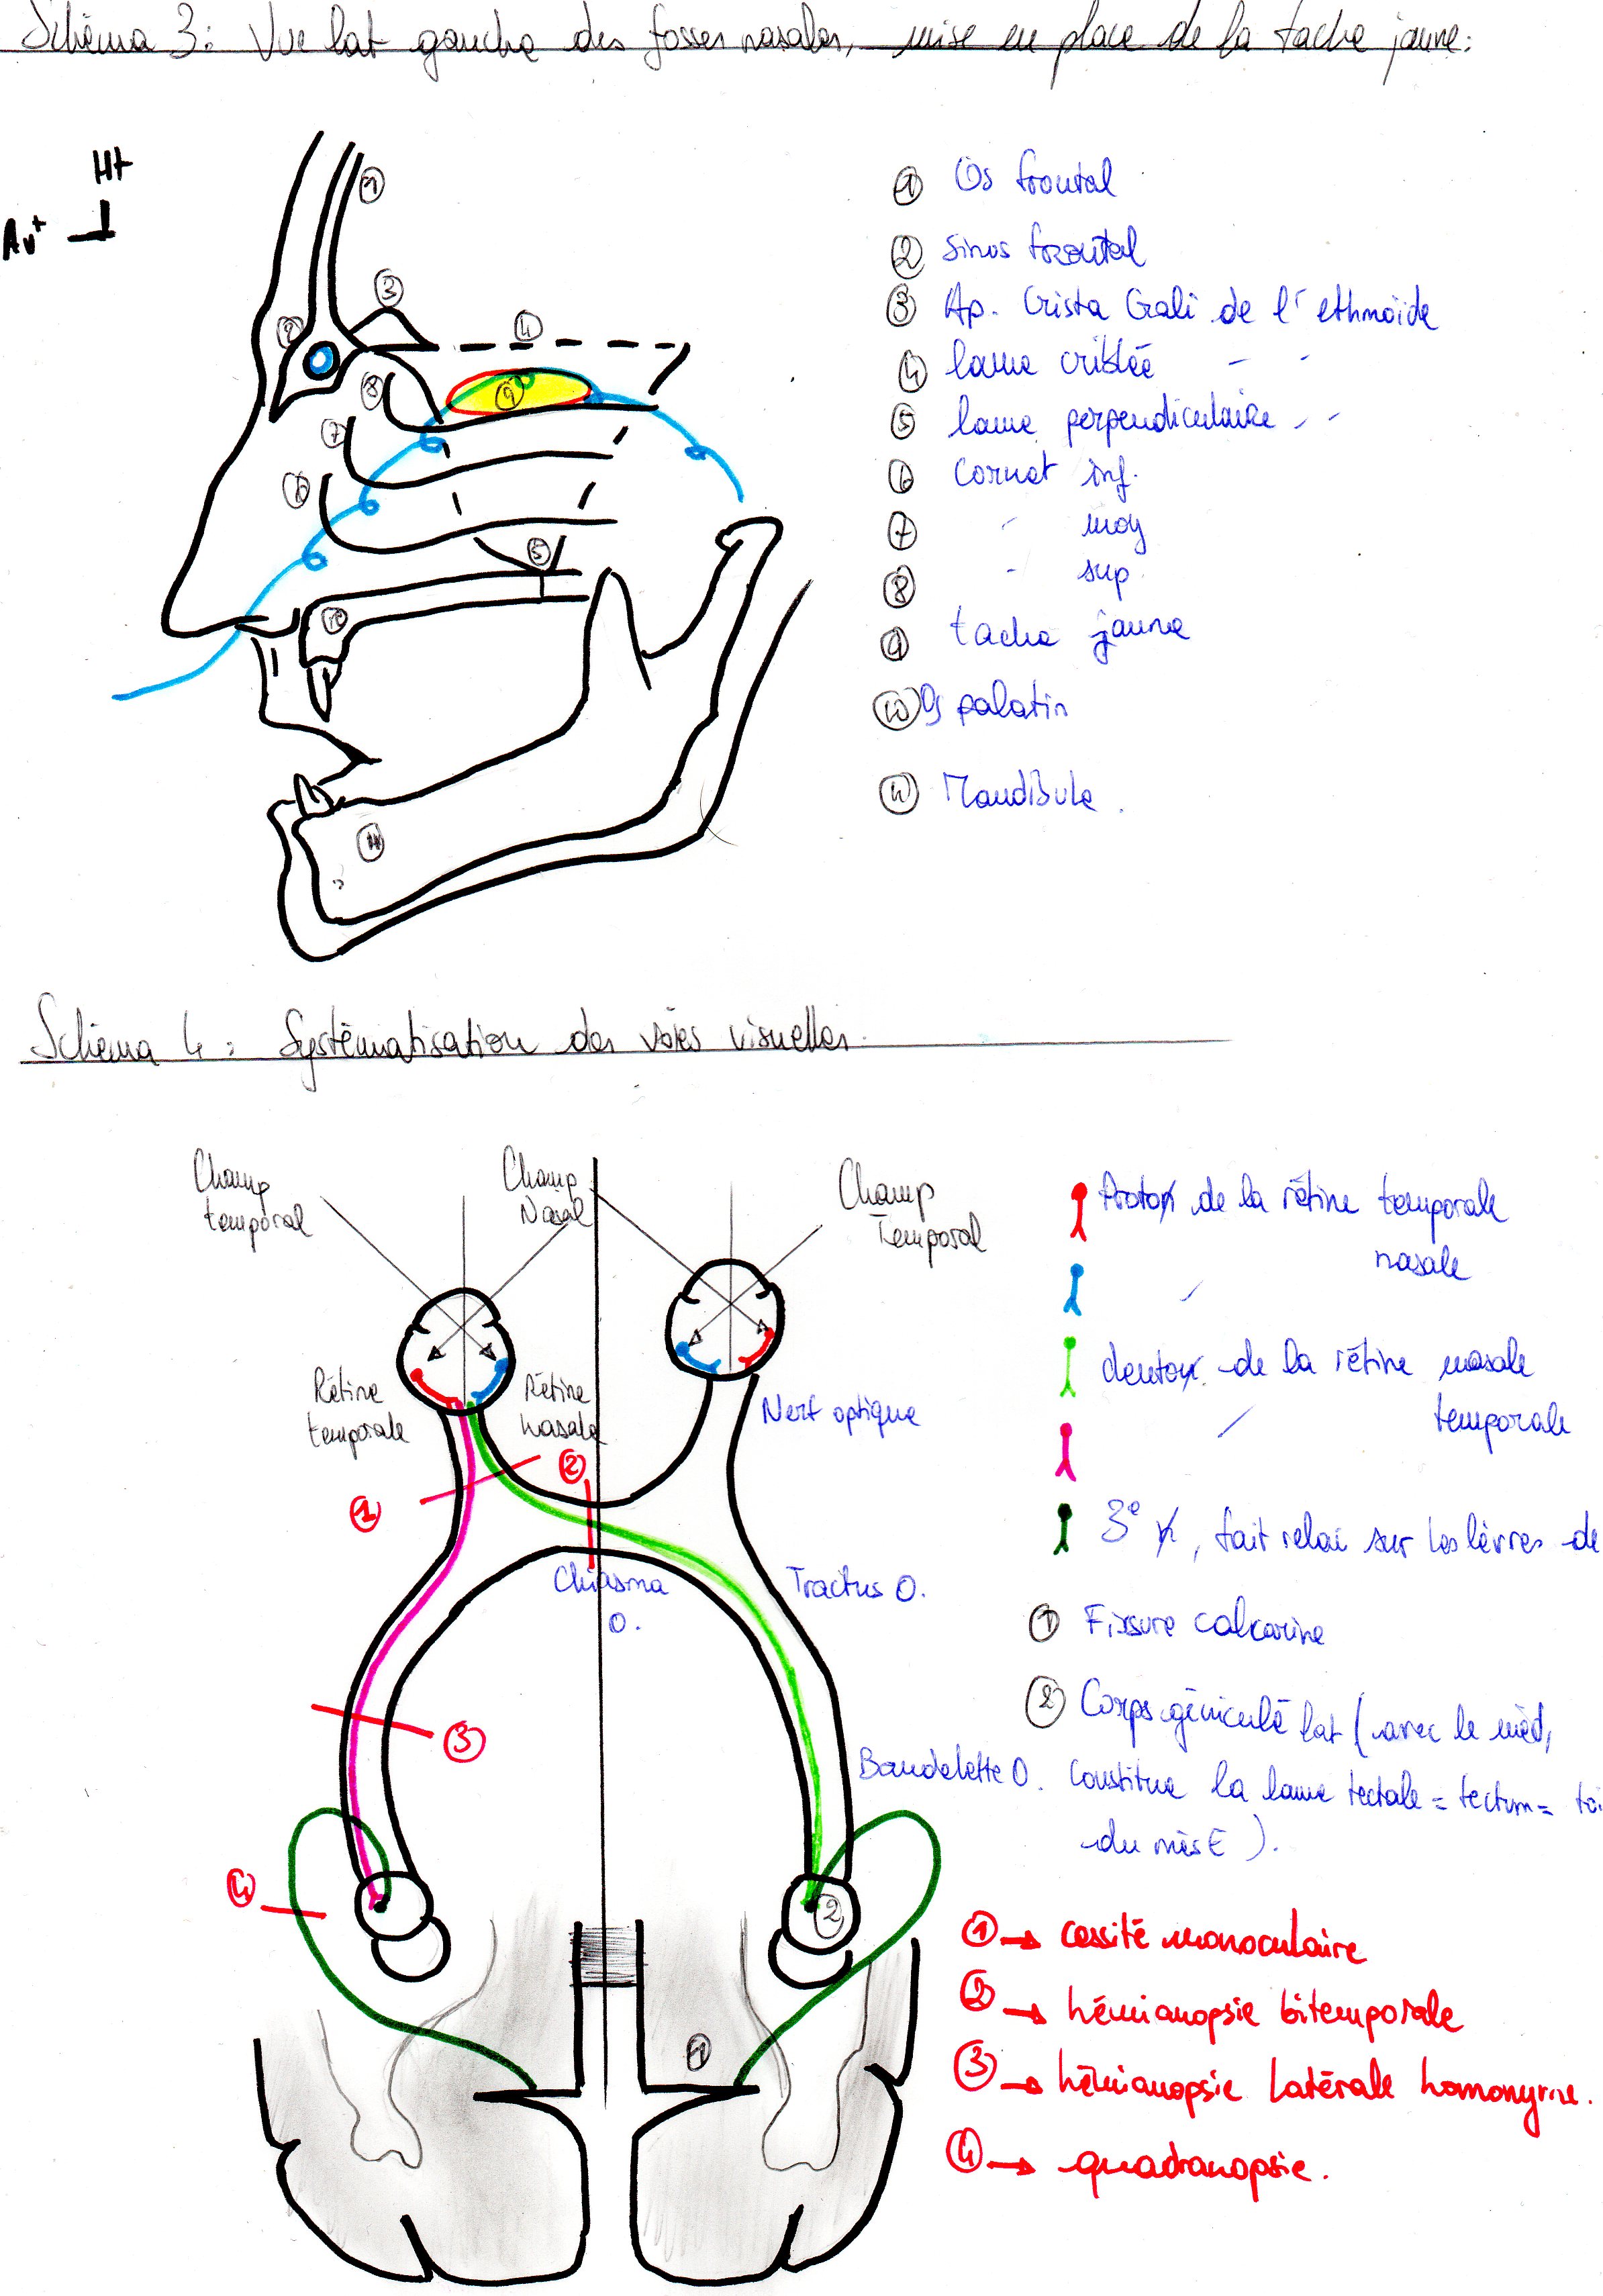 Schéma 3: Vue lat gauche des fosses nasales, mise en place de la tache jaune:
Ht
Av+
1
2
3
4
5
6
7
8
9
10
11
① Os frontal
② Sinus frontal
③ Ap. Crista Gali de l'ethmoïde
④ lame criblée - -
⑤ lame perpendiculaire - -
⑥ Cornet inf.
⑦ " moy
⑧ - sup.
⑨ tache jaune
⑩ Os palatin
⑪ Mandibule.
Schéma 4: Systématisation des voies visuelles.
Champ temporal
Champ Nasal
Champ Temporal
Rétine temporale
Rétine nasale
Nerf optique
Chiasma O.
Tractus O.
Bandelette O.
①
②
③
④
②
①
de la rétine temporale
" nasale
de la rétine nasale
" temporale
3e, fait relai sur les lèvres de
① Fissure calcarine
② Corps géniculé lat (avec le méd,
Constitue la lame tectale = tectum = toi
du més E).
① → cessité monoculaire
② → hémianopsie bitemporale
③ → hémianopsie latérale homonyme.
④ → quadranopsie.